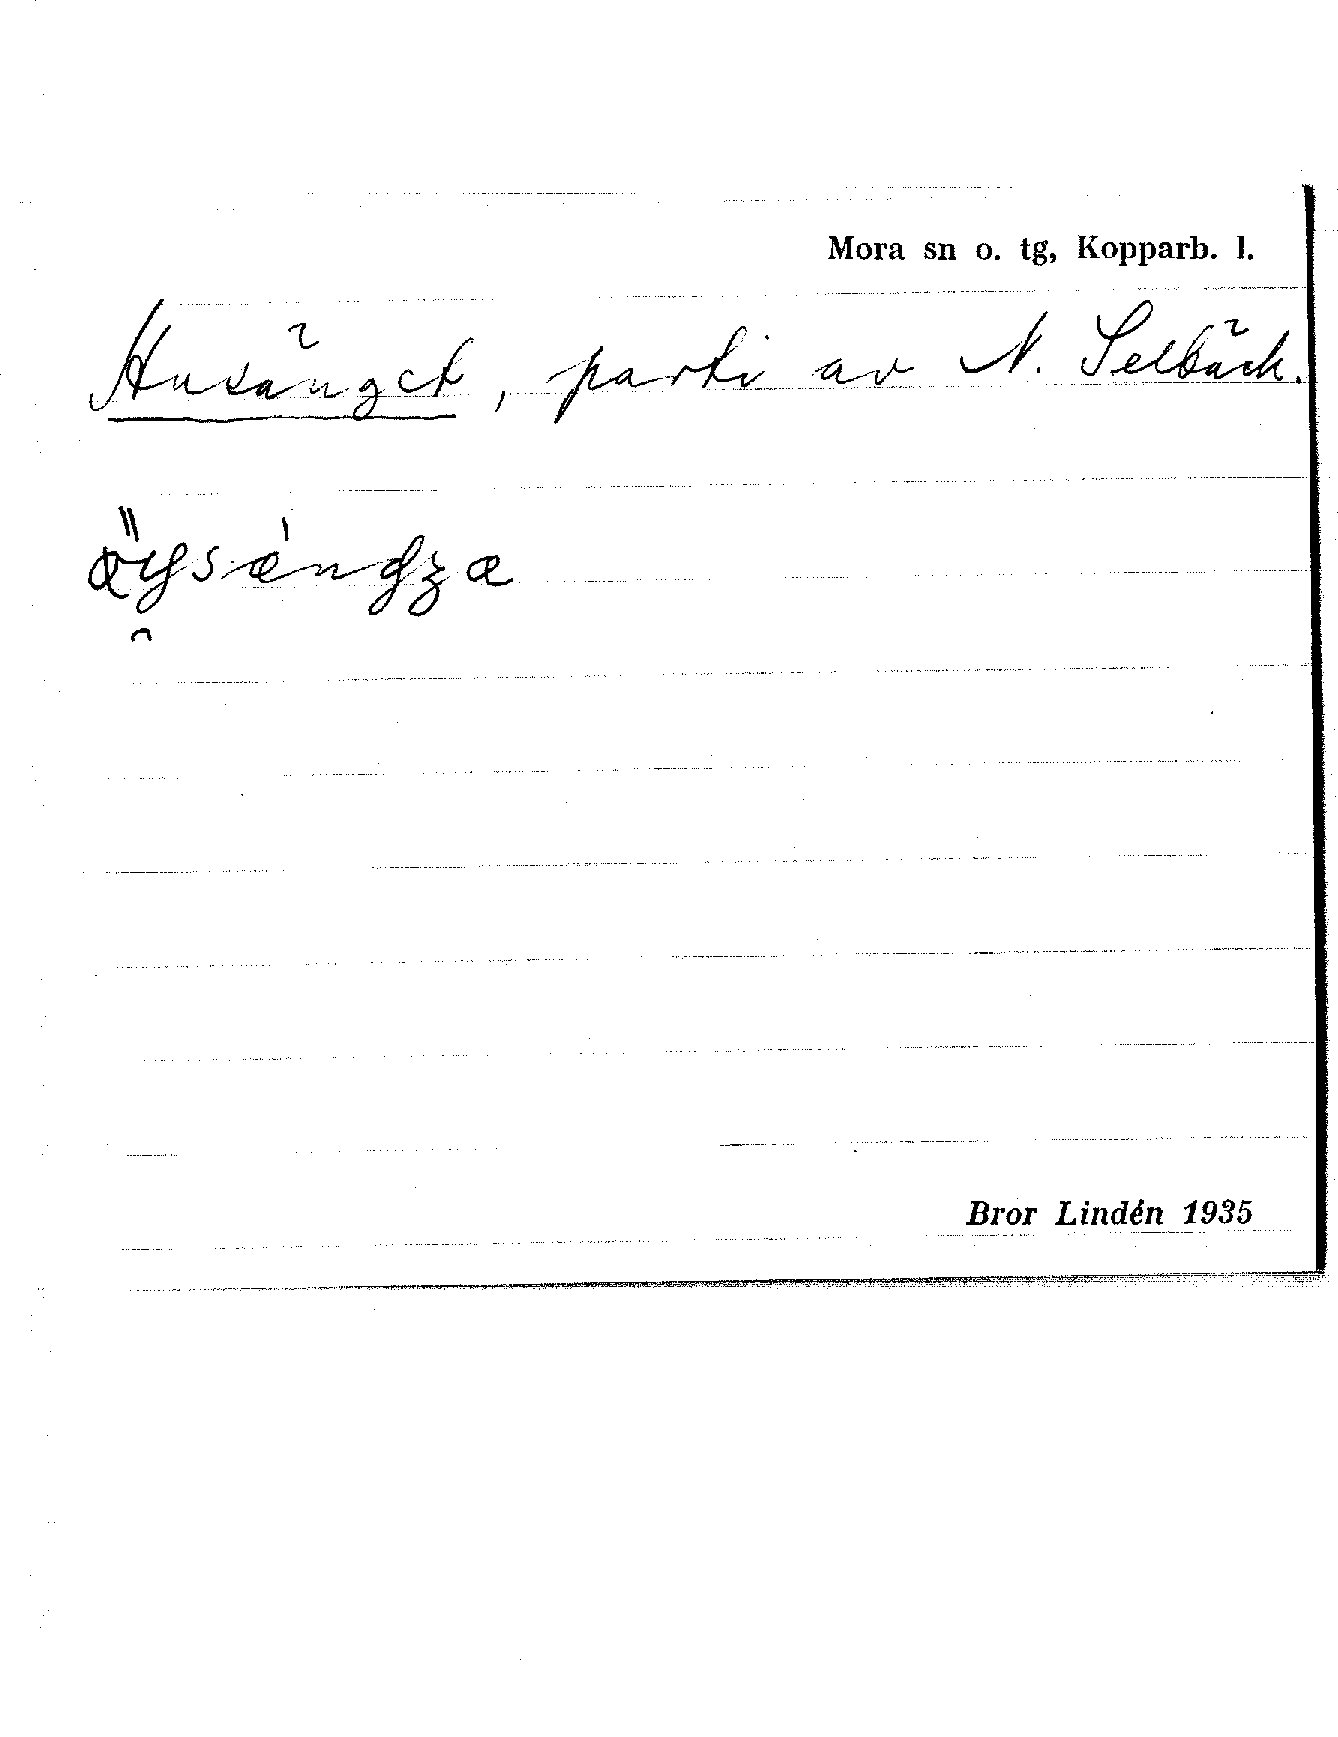 Mora sn o. tg, Kopparb. l.
Husänget, parti av N. Selbäck.
Bror Lindén 1935